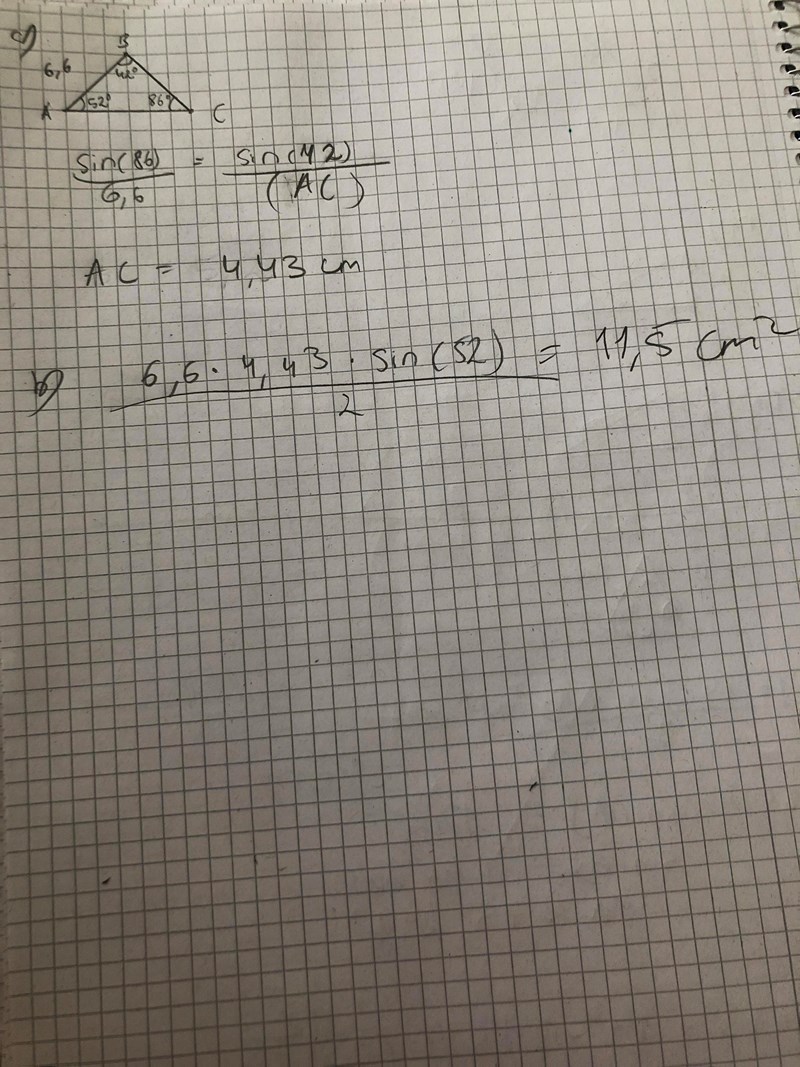 a)
B
6,6
42°
A 52° 86° C
sin(86)/6,6 = sin(42)/(AC)
AC = 4,43 cm
b) 6,6 · 4,43 · sin(52)/2 = 11,5 cm²